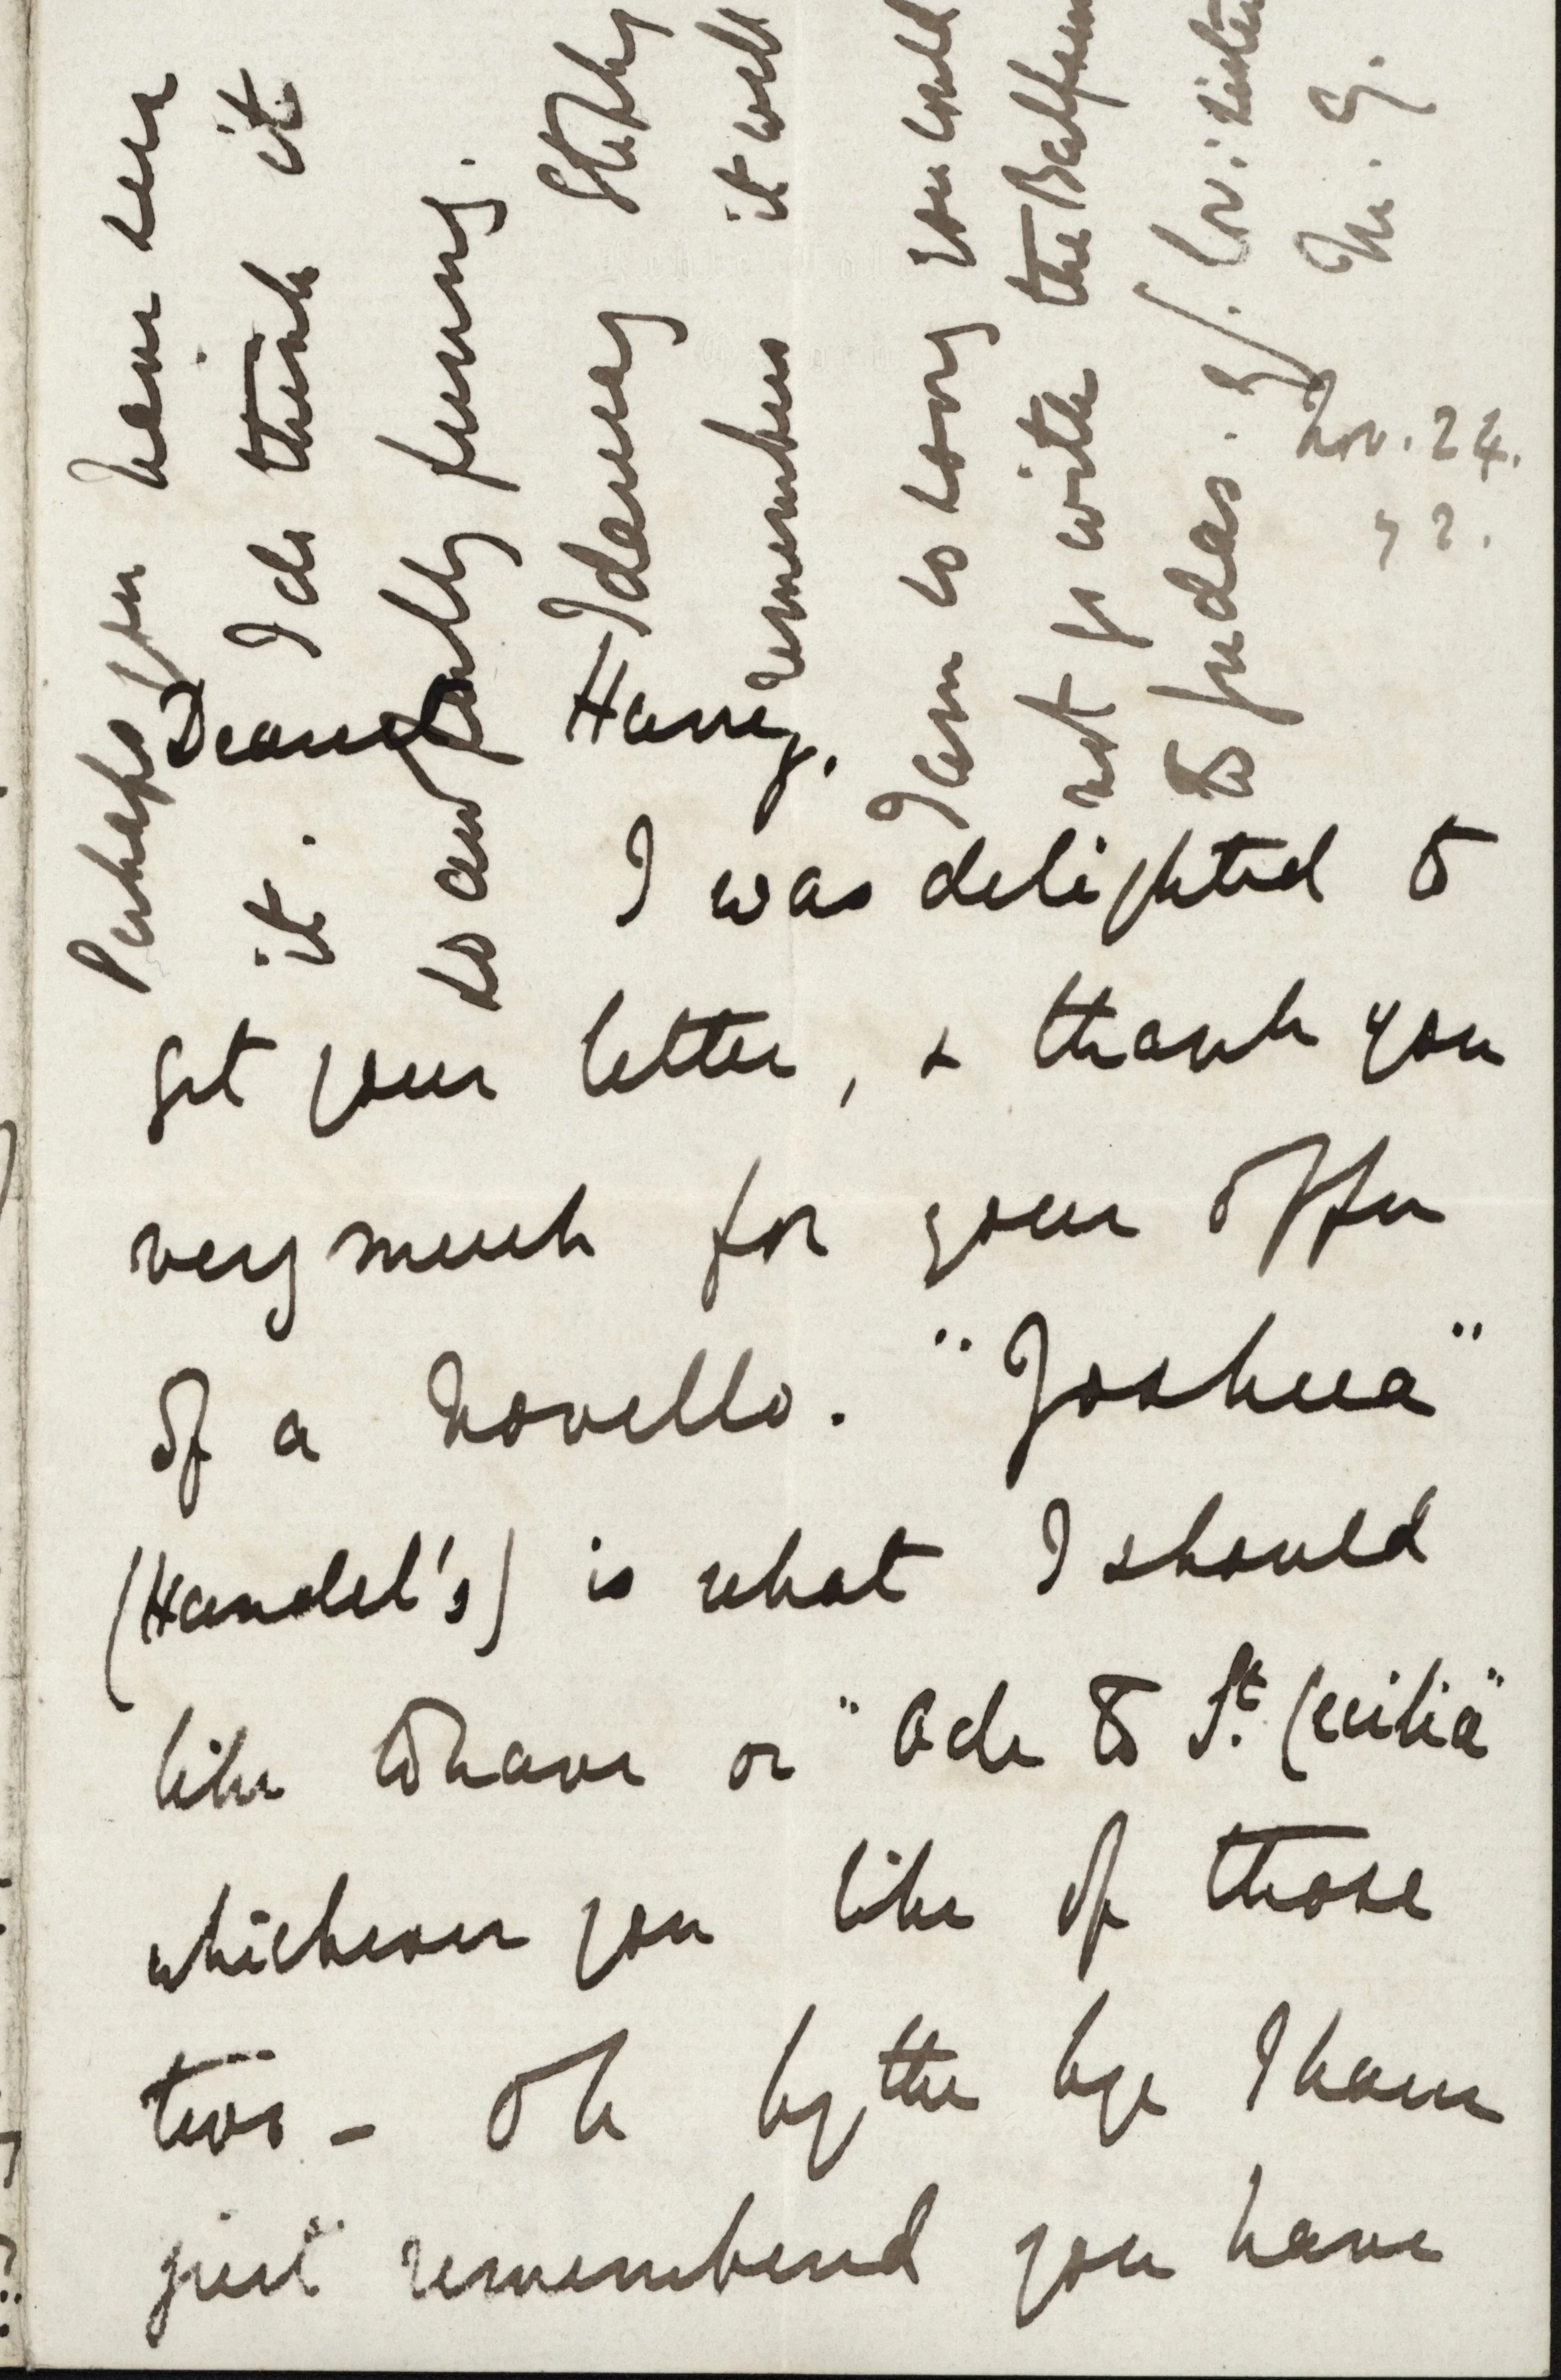 Nov. 24.
72.
Dearest Harry,
I was delighted to
get your letter, & thank you
very much for your offer
of a Novello. "Joshua"
(Handel's) is what I should
like to have or "Ode to St. Cecilia"
whichever you like of those
two - Oh by the bye I have
just remembered you have
Perhaps you never
it. I do think it
so awfully funny.
I daresay
remembers it well
I am so sorry you could
not go with the Balfours
to Judas.
M. G.